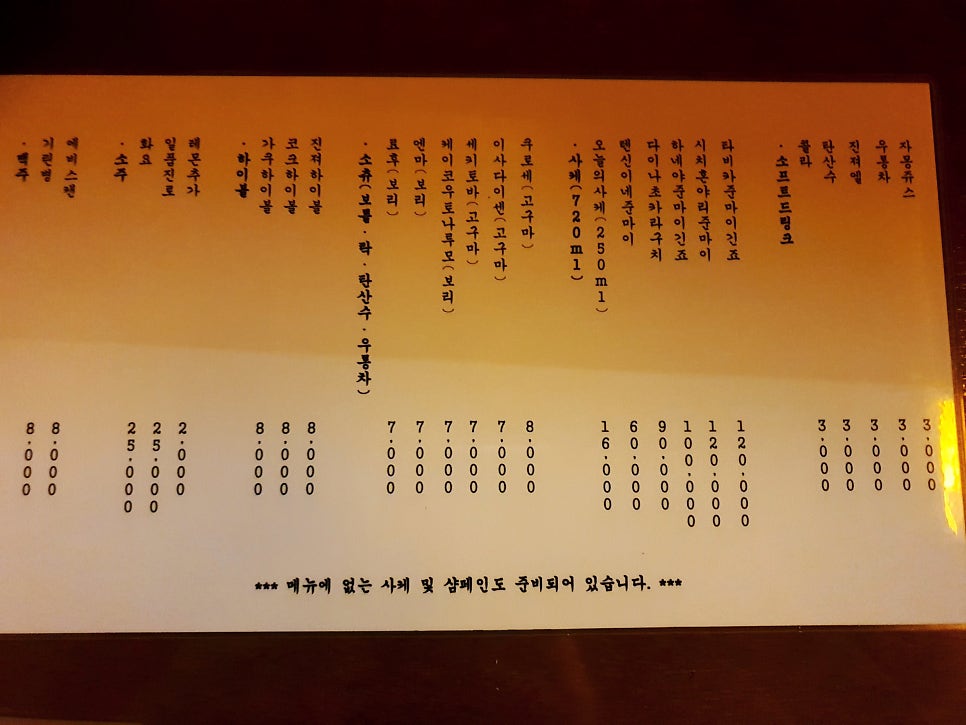 ·맥주
기린병 8,000
에비스캔 8,000
·소주
화요 25,000
일품진로 25,000
레몬추가 2,000
·하이볼
가쿠하이볼 8,000
코크하이볼 8,000
진져하이볼 8,000
·소츄(보틀·락·탄산수·우롱차)
료후(보리) 7,000
엔마(보리) 7,000
케이코우토나루모(보리) 7,000
세키토바(고구마) 7,000
이사다이센(고구마) 7,000
우로세(고구마) 8,000
·사케(720ml)
오늘의사케(250ml) 16,000
텐신이네준마이 60,000
다이나초카라구치 90,000
하네야준마이긴죠 100,000
시치혼야리준마이 120,000
타비카준마이긴죠 120,000
·소프트드링크
콜라 3,000
탄산수 3,000
진져엘 3,000
우롱차 3,000
자몽쥬스 3,000
*** 메뉴에 없는 사케 및 샴페인도 준비되어 있습니다. ***